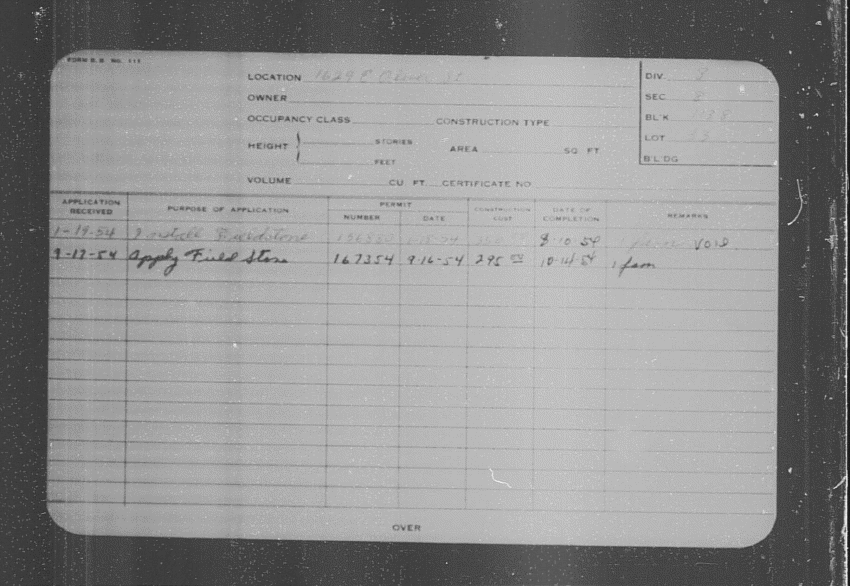 FORM B. B. No. 111
LOCATION 1629 E St
DIV. 3
OWNER
SEC 8
OCCUPANCY CLASS CONSTRUCTION TYPE
BL'K
HEIGHT STORIES FEET AREA SQ. FT.
LOT 13
B'LDG
VOLUME CU. FT. CERTIFICATE NO.
APPLICATION RECEIVED PURPOSE OF APPLICATION PERMIT NUMBER DATE CONSTRUCTION COST DATE OF COMPLETION REMARKS
1-19-54 Install Fieldstone 8-10-54 VOID
9-17-54 Apply Field Stone 167354 9-16-54 295 10-14-54 1 fam
OVER